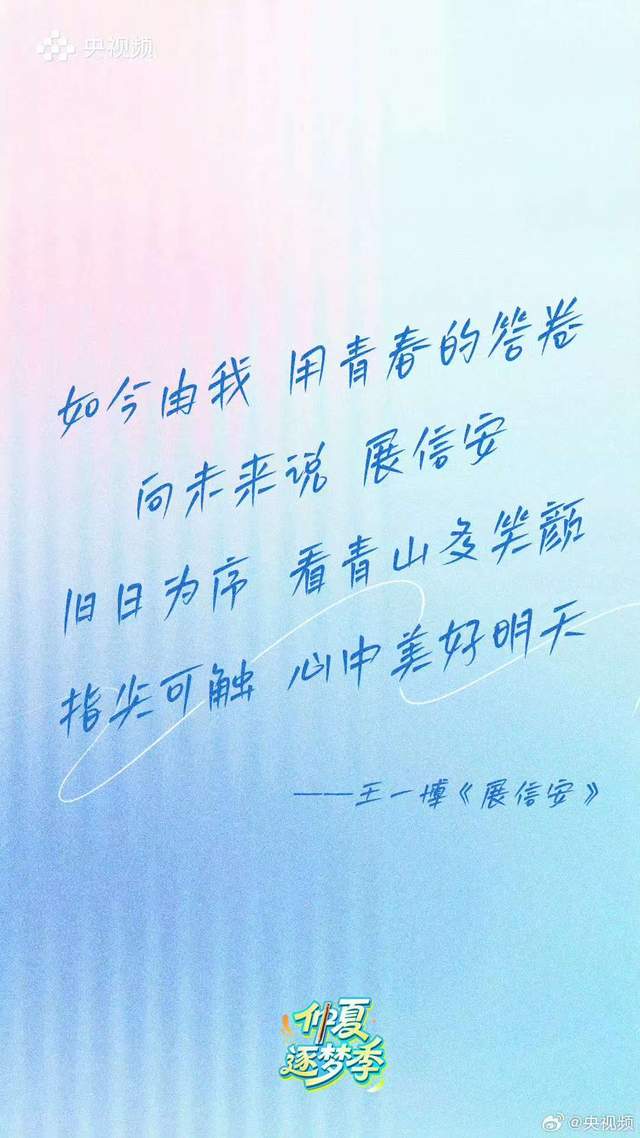 央视频
如今由我 用青春的答卷
向未来说 展信安
旧日为序 看青山多笑颜
指尖可触 心中美好明天
——王一博《展信安》
仲夏
逐梦季
@央视频